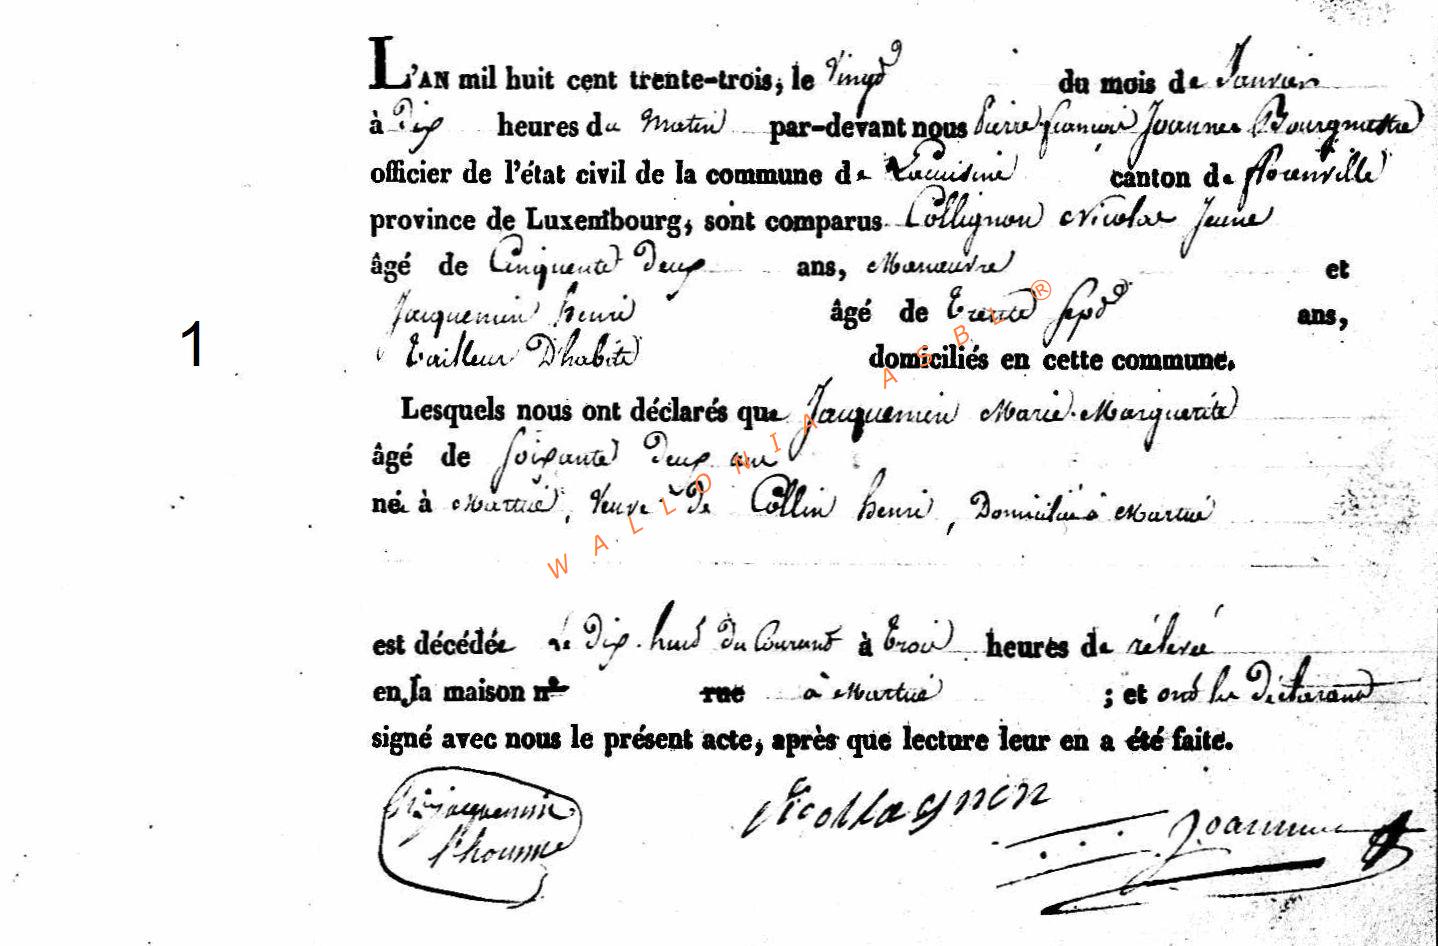 L'AN mil huit cent trente-trois, le Vingt du mois de Janvier
à Dix heures du Matin par-devant nous Pierre françois Joannes Bourgmestre
officier de l'état civil de la commune de Lacuisine canton de florenville
province de Luxembourg, sont comparus Collignon Nicolas Jeune
âgé de Cinquante Deux ans, Manœuvre et
Jacquemin henri âgé de trente sept ans,
1
tailleur D'habits domiciliés en cette commune.
Lesquels nous ont déclarés que Jacquemin Marie Marguerite
âgé de soixante Deux ans
née à Martué, Veuve de Collin henri, Domiciliée à Martué
WALLONIA ASBL ®
est décédée Le Dix huit du Courant à trois heures de relevée
en la maison n° rue à Martué ; et ont les Déclarants
signé avec nous le présent acte, après que lecture leur en a été faite.
jacquemin
Joannes